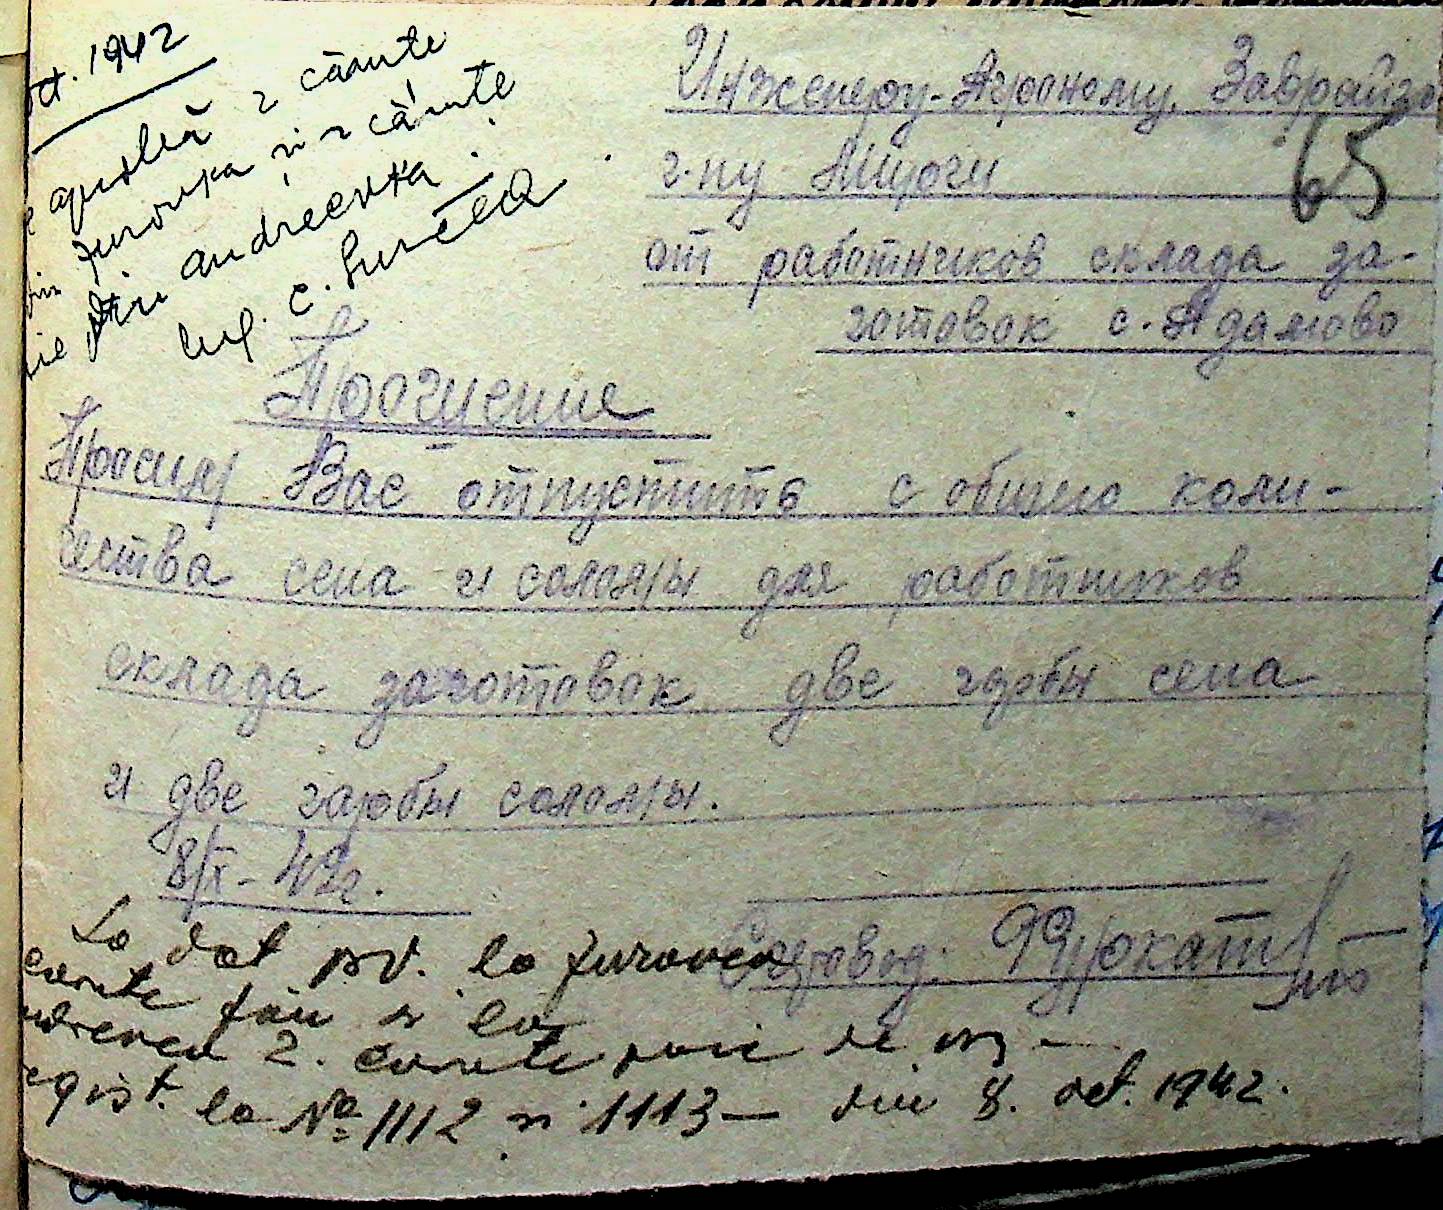 oct. 1942
aprobă 2 căruțe
din Jurovka și 2 căruțe
paie din Andreevka.
Ing. C. Surcea
Инженеру-Агроному, Заврайзо
г-ну Мироги
65
от работников склада за-
готовок с. Адамово
Прошение
Просим Вас отпустить с общего коли-
чества сена и соломы для работников
склада заготовок две гарбы сена
и две гарбы соломы.
8/X-42г.
Садовод: Фуркат
S-a dat pv. la Jurovca
carute fân și la
Andreevca 2. carute paie de orz —
regist. la № 1112 și 1113 — din 8. oct. 1942.